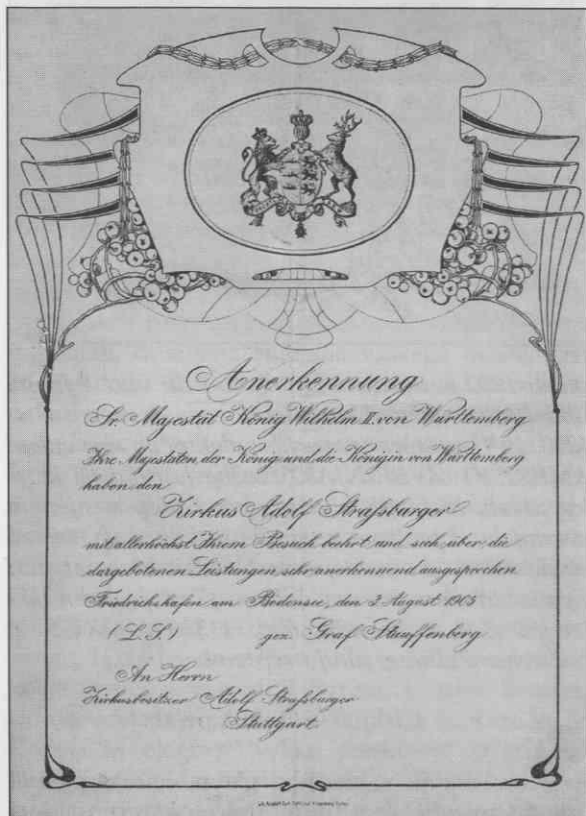 Anerkennung
Sr. Majestät König Wilhelm II. von Württemberg
Ihre Majestäten der König und die Königin von Württemberg
haben den
Zirkus Adolf Straßburger
mit allerhöchst Ihrem Besuch beehrt und sich über die
dargebotenen Leistungen sehr anerkennend ausgesprochen
Friedrichshafen am Bodensee, den 2. August 1905
(L.S.) gez. Graf Stauffenberg
An Herrn
Zirkusbesitzer Adolf Straßburger
Stuttgart